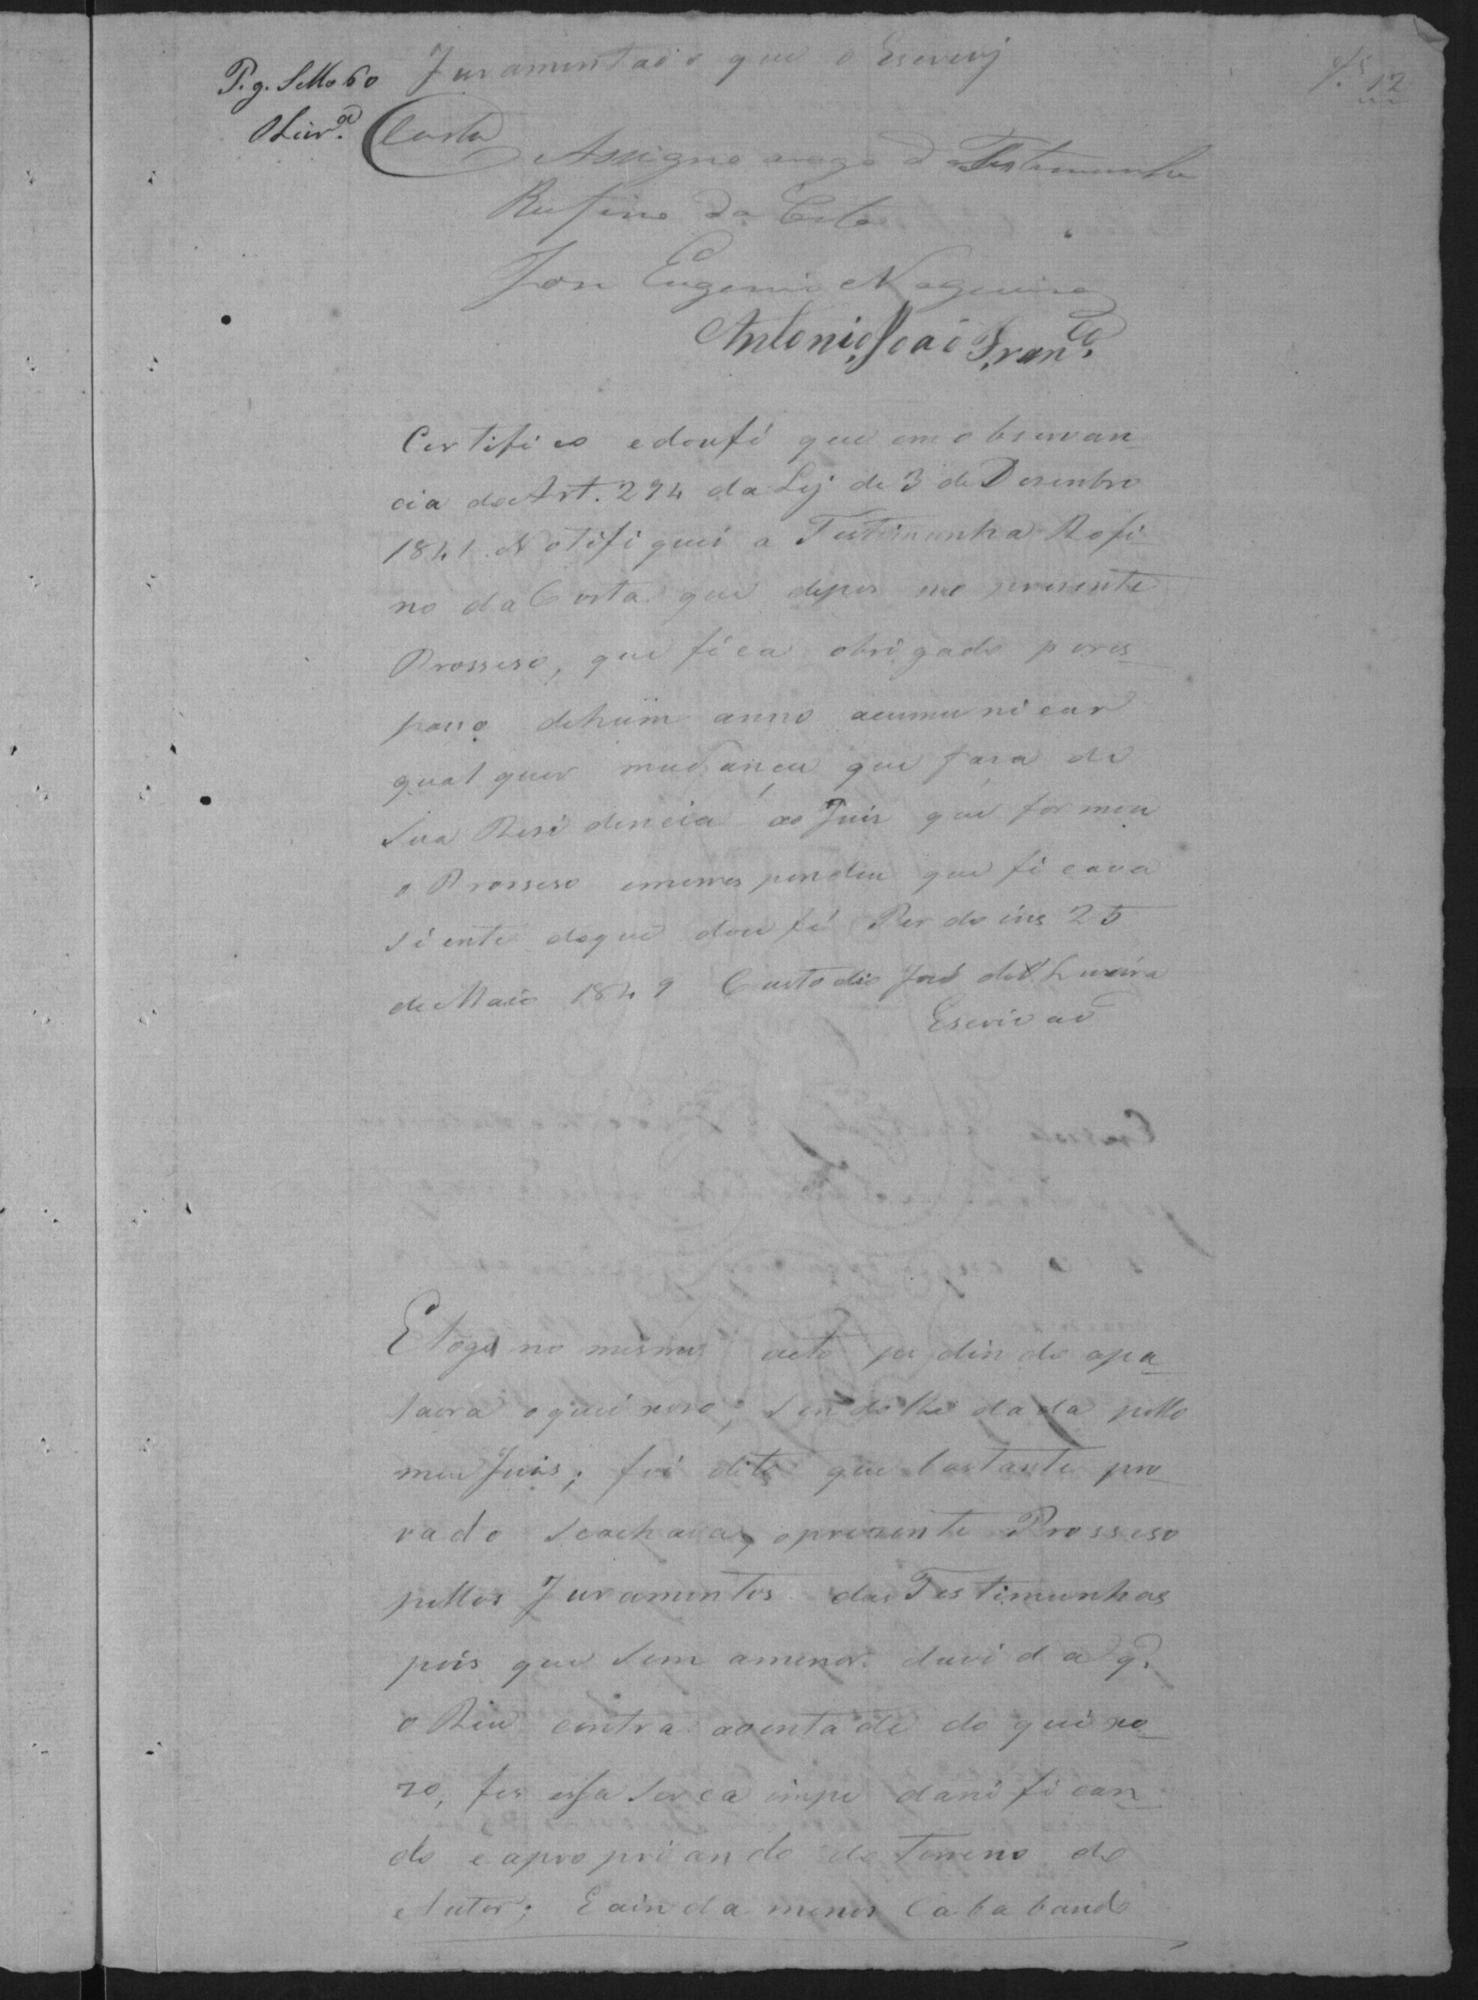 fs 12
P. g. Sello 60
Olivrª
Juramentado que o Escrevj
Costa
Assigno arogo da Testemunha
Rufino da Costa
Jose Eugenio Nogueira
Antonio João Franco
Certifico edoufé que em observan
cia do Art. 294 da Lej de 3 de Desembro
1841. Notifiquei a Testemunha Rofi
no da Costa que depos no presente
Prosseso, que fica obrigado pores
passo dehum anno acumunicar
qualquer mudança que fasa de
Sua Residencia ao Juis que formou
o Prosseso emerres pondeu que ficava
siente doque dou fé Perdoins 25
de Maio 1849 Custodio José de Oliveira
Escrivaõ
E logo no mesmo acto pedindo apa
lavra oqueixoso; sendolhe dada pello
meu Juis; foi dito que bastante pro
vado seachava, opresente Prosseso
pellos Juramentos das Testemunhas
pois que sem amenor duvida q.
o Reu contra avontade do queixo
zo, fes essa serca danifican
do e apropriando do terreno do
Autor; E ainda menos Cababando